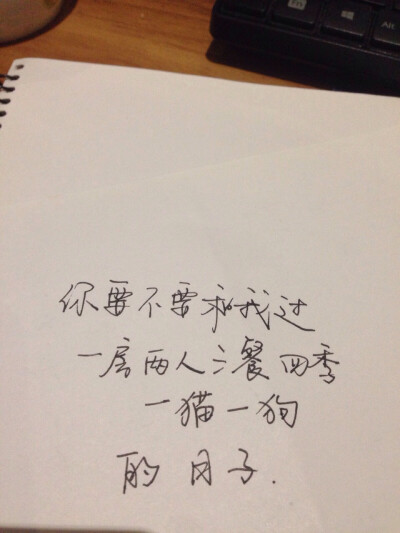 Fn
Alt
你要不要和我过
一房两人三餐四季
一猫一狗
的日子.